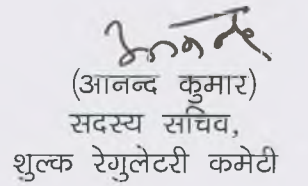 आनन्द
(आनन्द कुमार)
सदस्य सचिव,
शुल्क रेगुलेटरी कमेटी